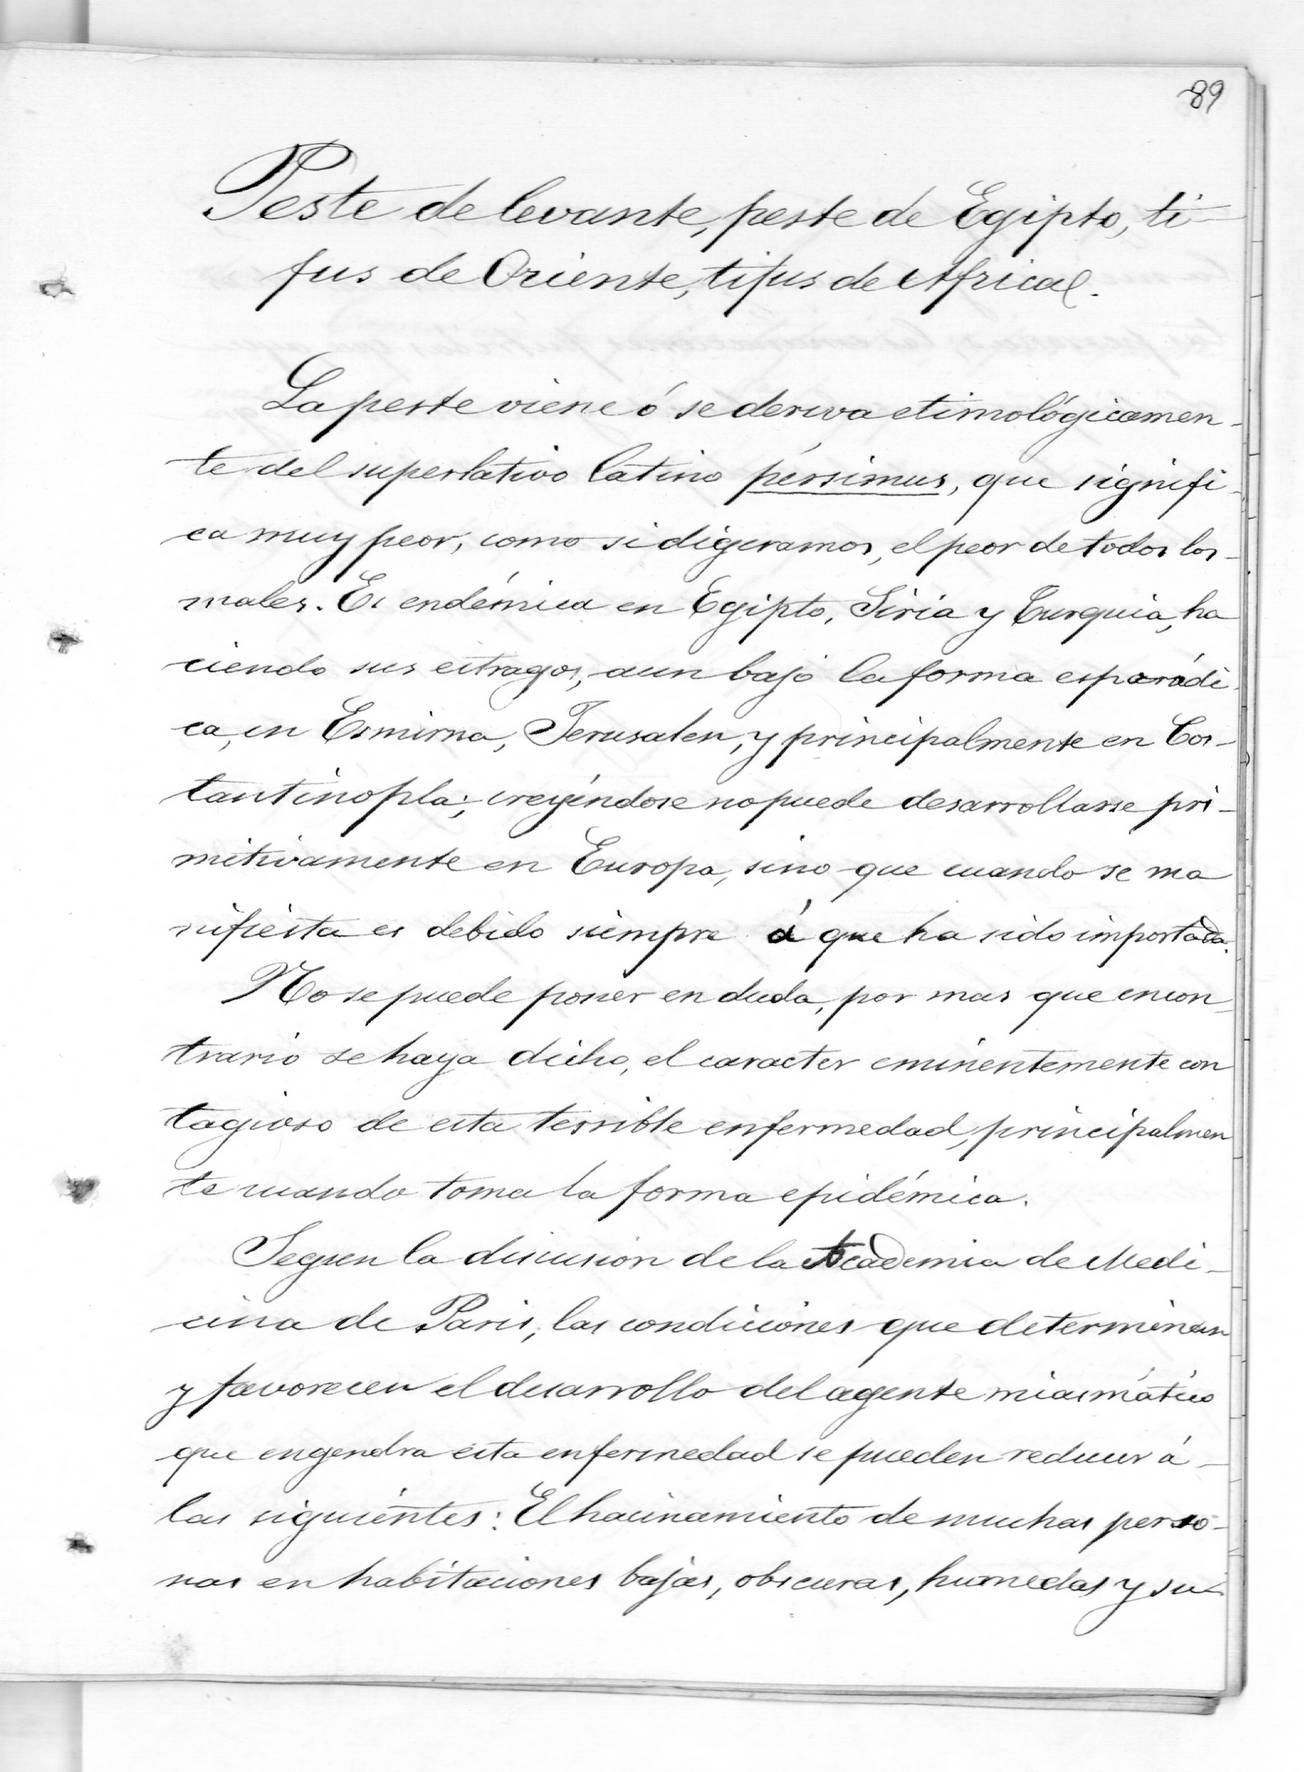 89
Peste de levante, peste de Egipto, ti-
fus de Oriente, tifus de Africa.
La peste viene ó se deriva etimológicamen-
te del superlativo latino péssimus, que signifi-
ca muy peor, como si digeramos, el peor de todos los
males. Es endémica en Egipto, Siria y Turquia, ha
ciendo sus estragos, aun bajo la forma esporádi-
ca, en Esmirna, Jerusalen, y principalmente en Cos-
tantinopla; creyéndose no puede desarrollarse pri-
mitivamente en Europa, sino que cuando se ma
nifiesta es debido siempre á que ha sido importada.
No se puede poner en duda, por mas que encon-
trario se haya dicho, el caracter eminentemente con
tagioso de esta terrible enfermedad, principalmen
te cuando toma la forma epidémica.
Segun la discusion de la Academia de Medi-
cina de Paris, las condiciones que determinan
y favorecen el desarrollo del agente miasmático
que engendra esta enfermedad se pueden reducir á
las siguientes: El hacinamiento de muchas perso-
nas en habitaciones bajas, obscuras, humedas y su-